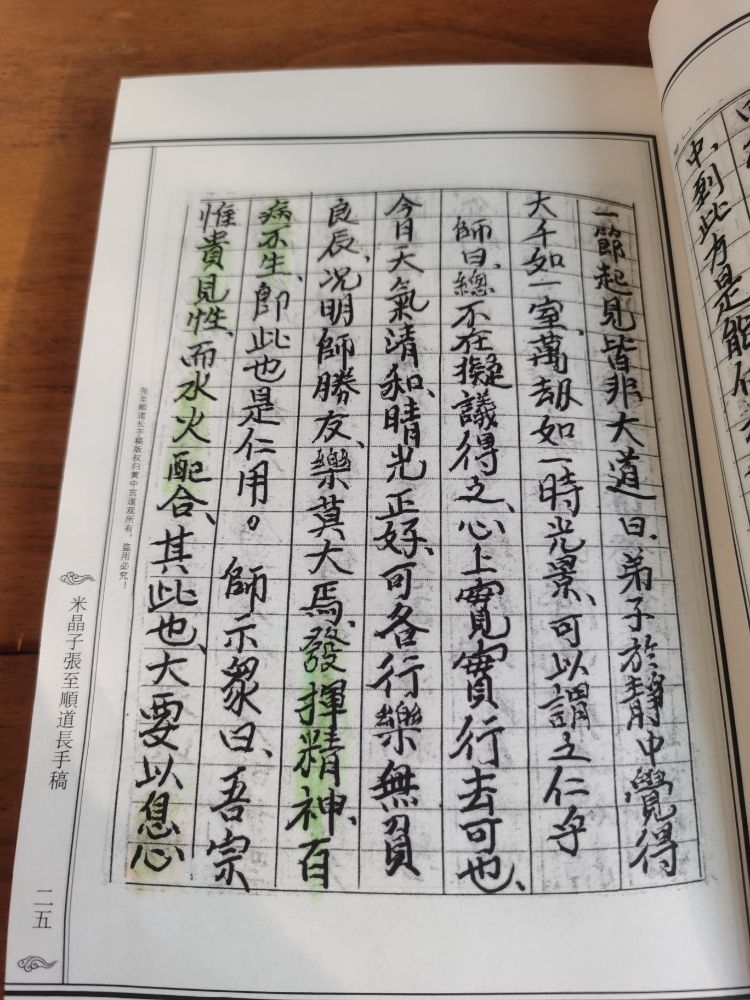 中、到此方是能
一節起見皆非大道曰、弟子於靜中覺得
大千如一室、萬劫如一時光景、可以謂之仁乎
師曰、總不在擬議得之、心上寬實行去可也、
今日天氣清和、晴光正好、可各行樂無負
良辰、况明師勝友、樂莫大焉、發揮精神、百
病不生、即此也是仁用。 師示眾曰、吾宗
惟貴見性、而水火配合、其此也、大要以息心
张至顺道长手稿版权归黄中宫道观所有，盗用必究！
米晶子張至順道長手稿
二五